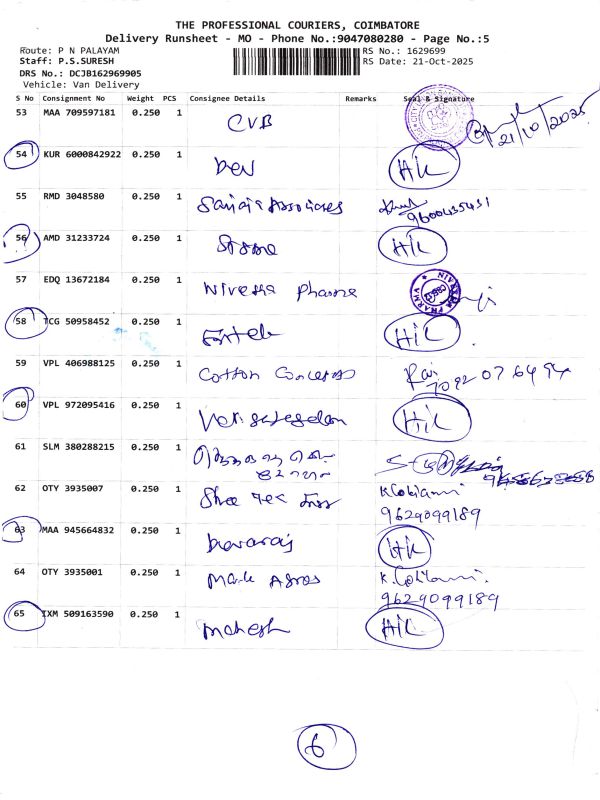 THE PROFESSIONAL COURIERS, COIMBATORE
Delivery Runsheet - MO - Phone No.:9047080280 - Page No.:5
Route: P N PALAYAM RS No.: 1629699
Staff: P.S.SURESH RS Date: 21-Oct-2025
DRS No.: DCJB162969905
Vehicle: Van Delivery
S No Consignment No Weight PCS Consignee Details Remarks Seal & Signature
53 MAA 709597181 0.250 1 CVB 21/10/2025
54 KUR 6000842922 0.250 1 Dev H/L
55 RMD 3048580 0.250 1 Associates
9600435431
56 AMD 31233724 0.250 1 H/L
57 EDQ 13672184 0.250 1 Nivesha Pharma
58 TCG 50958452 0.250 1 H/L
59 VPL 406988125 0.250 1 Cotton Concepts
60 VPL 972095416 0.250 1 H/L
61 SLM 380288215 0.250 1
62 OTY 3935007 0.250 1 Shree Tec
9629099189
63 MAA 945664832 0.250 1 Devaraj H/L
64 OTY 3935001 0.250 1 Mark Agros
9629099189
65 IXM 509163590 0.250 1 Mahesh H/L
6